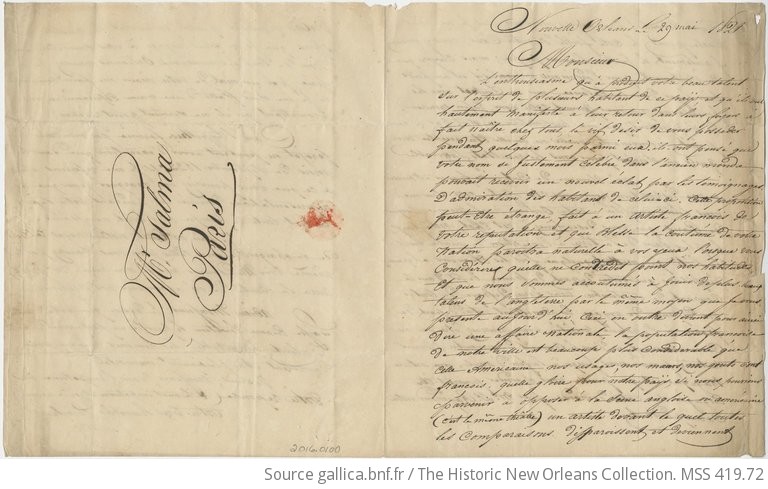 Mr. Talma
Paris
2016.0100
Nouvelle Orleans le 29 mai
Monsieur
L'enthousiasme qu'a produit votre beau talent
sur l'esprit de plusieurs habitant de ce pays et qu'ils ont
hautement manifesté à leur retour dans leurs foyers a
fait naître chez tous le vif desir de vous posseder
pendant quelques mois parmi eux, ils ont pensé que
votre nom si justement celebre dans l'ancien monde
pourait recevoir un nouvel éclat par les temoignages
D'admiration des habitant de celui-ci. Cette proposition
peut-être étrange, fait à un artiste francois de
votre reputation et qui blesse la coutume de votre
Nation paroitra naturelle à vos yeux lorsque vous
Considererez quelle ne contredit point nos habitudes,
Et que nous sommes accoutumés à jouir des plus beaux
talens de l'angleterre par le même moyen que je vous
presente aujourd'hui. Ceci en outre devient pour ainsi
dire une affaire Nationale. la population francoise
de notre ville est beaucoup plus Considerable que
celle Americaine nos usages, nos mœurs, nos goûts sont
francois, quelle gloire pour notre pays, si nous pouvions
parvenir à opposer à la scene angloise ou americaine
(c'est le même théâtre) un artiste devant le quel toutes
les Comparaisons disparoissent et deviennent
Source gallica.bnf.fr / The Historic New Orleans Collection. MSS 419.72